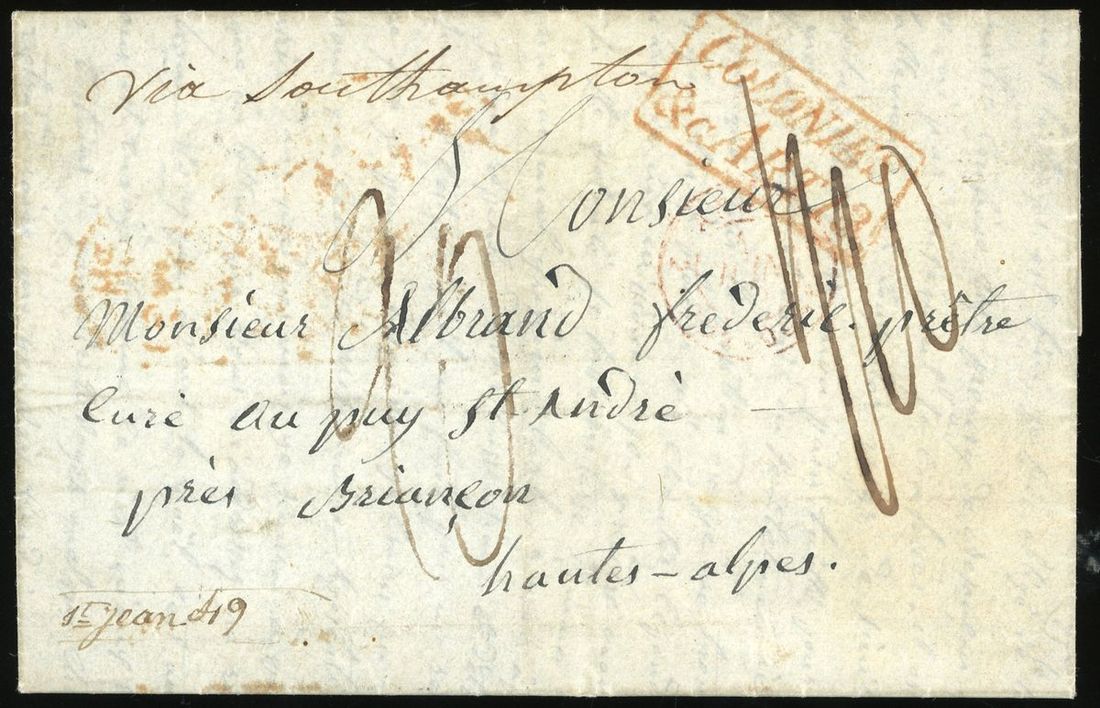 via Southampton
COLONIES
&c. ART. 13
Monsieur
Monsieur Albrand frederic prêtre
Curé au puy St André
près Briançon
hautes-alpes.